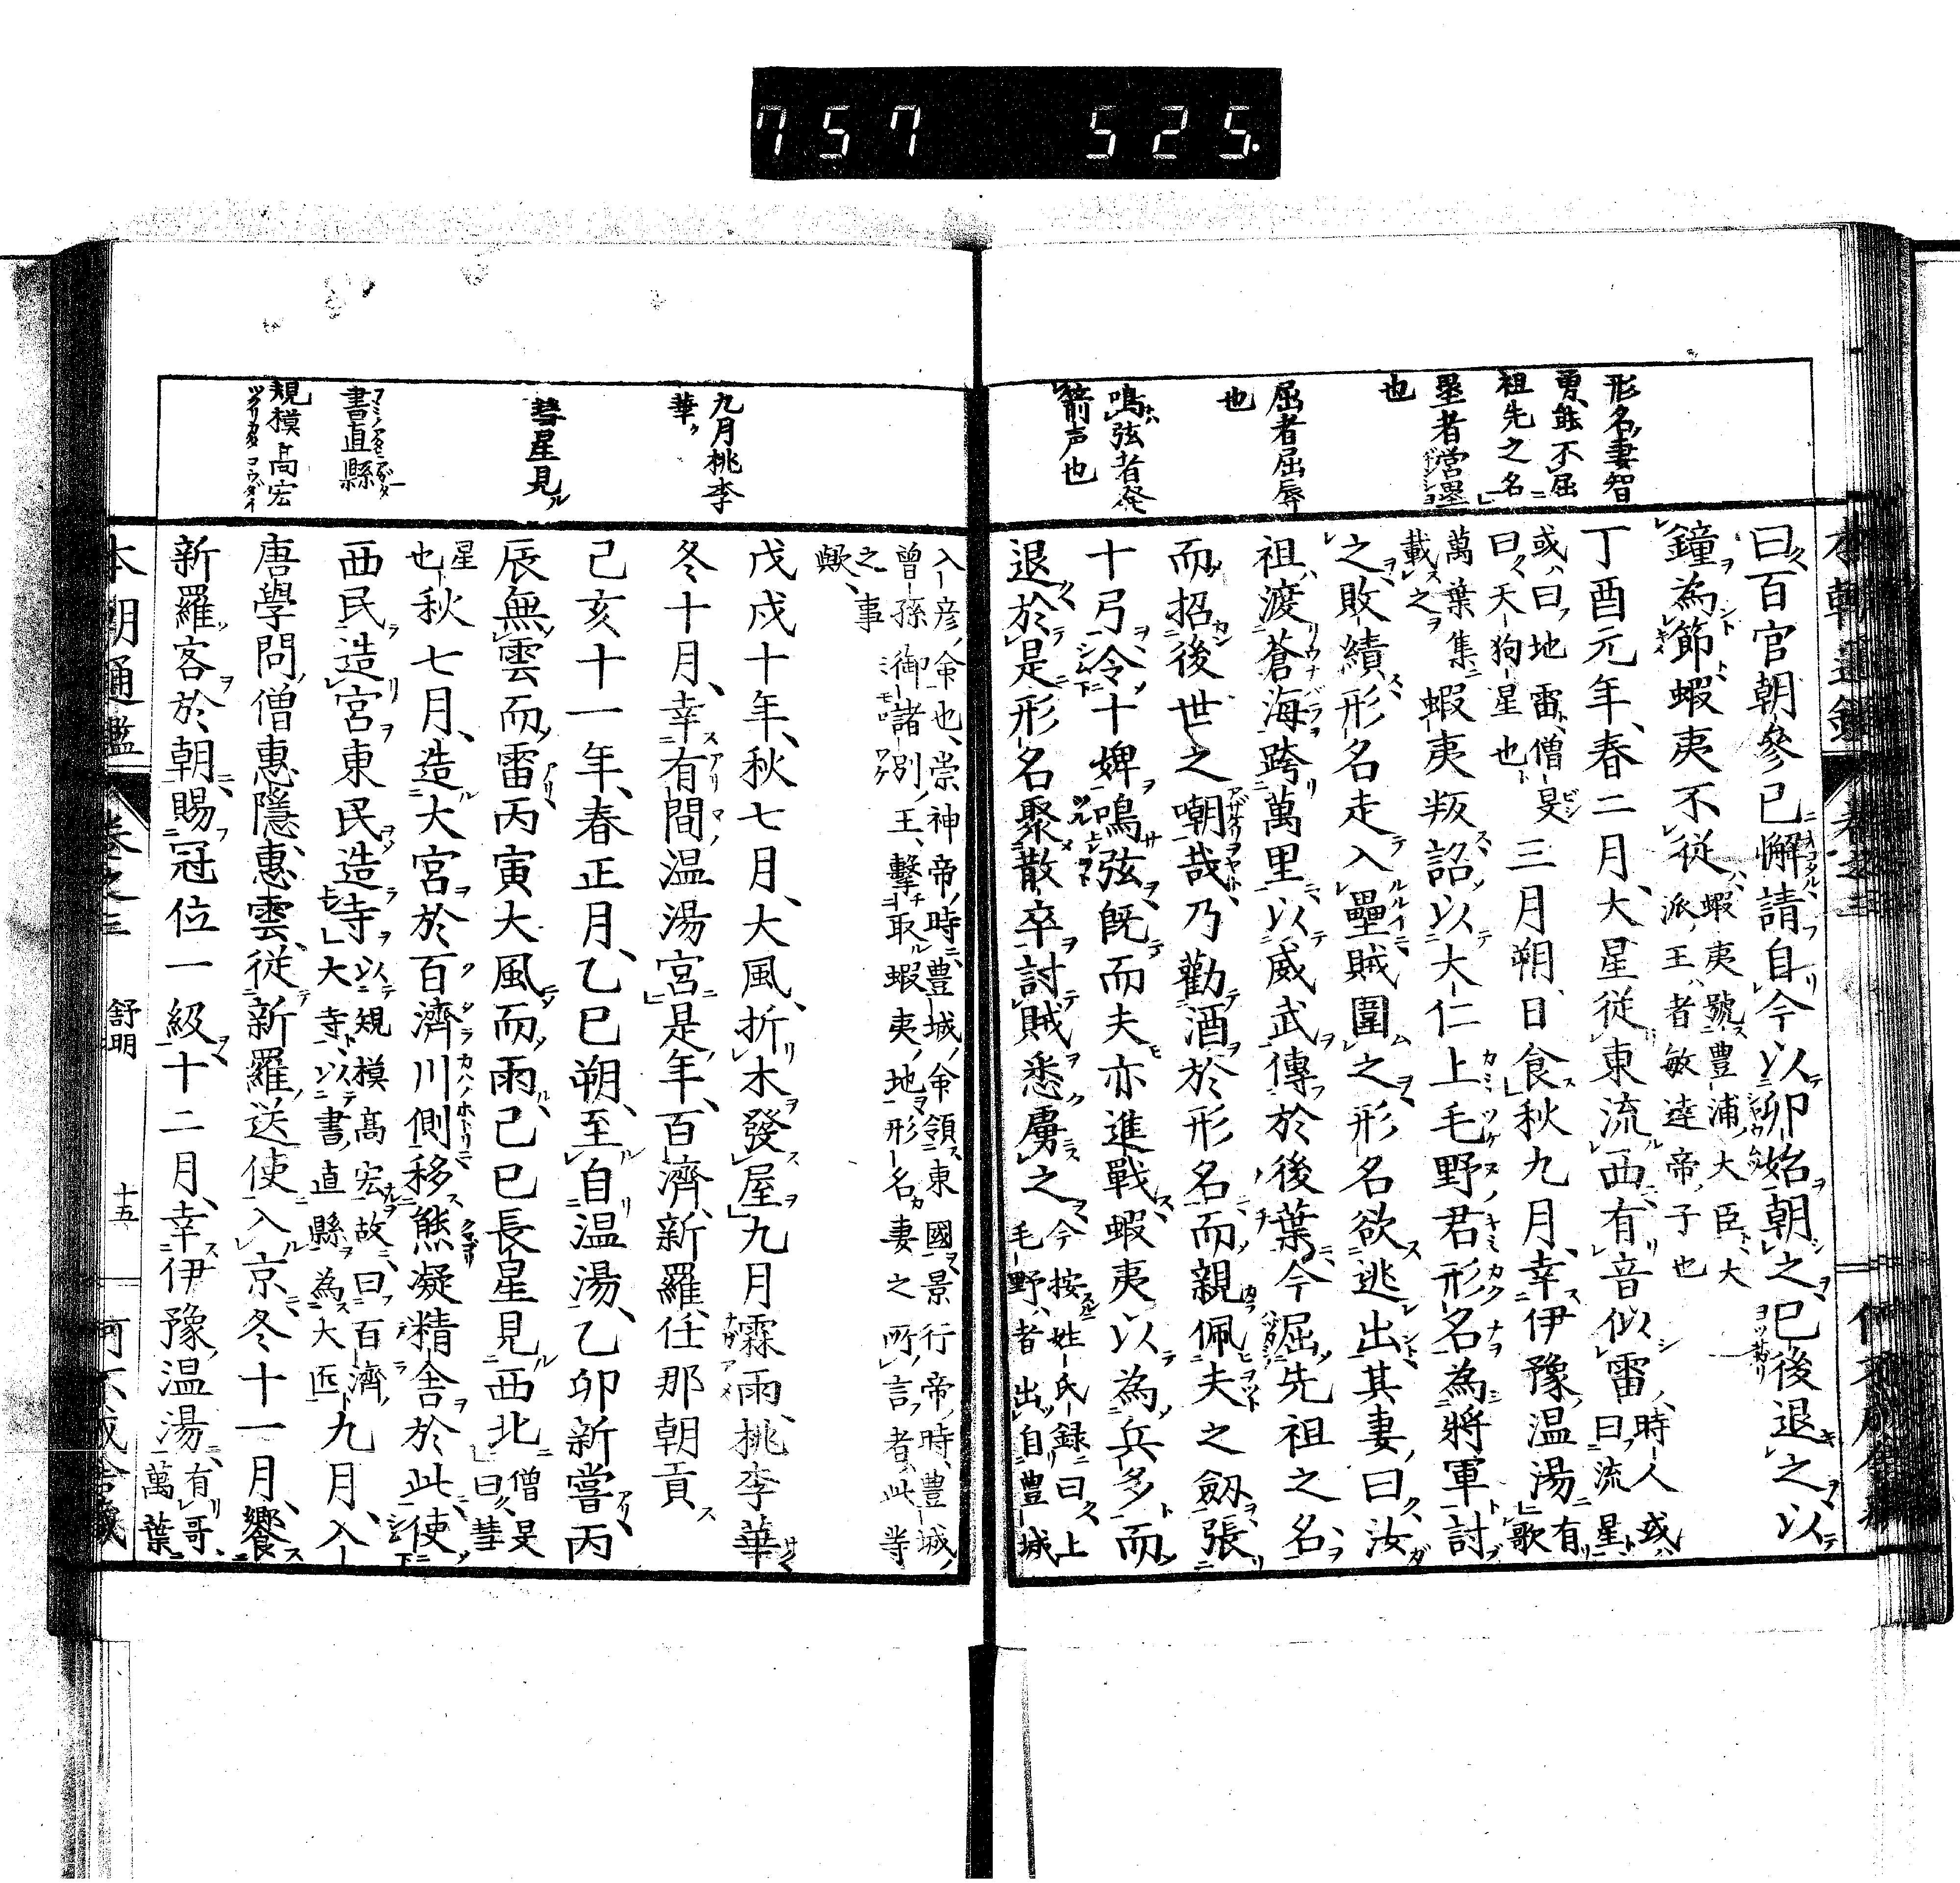 757 525.
形名妻智
勇能不屈
祖先之名
壘者営壘
也
屈者屈辱
也
鳴弦者発
箭声也
曰百官朝參已懈請自今以卯始朝之巳後退之以
鐘為節蝦夷不従蝦夷號豊浦大臣大
派王者敏達帝子也
丁酉元年春二月大星従東流西有音似雷時人或
曰流星
或曰地雷僧旻
曰天狗星也三月朔日食秋九月幸伊豫温湯有
歌
萬葉集
載之蝦夷叛詔以大仁上毛野君形名為將軍討
之敗績形名走入壘賊圍之形名欲逃出其妻曰汝
祖渡蒼海跨萬里以威武傳於後葉今屈先祖之名
而招後世之嘲哉乃勸酒於形名而親佩夫之劔張
十弓令十婢鳴弦既而夫亦進戰蝦夷以為兵多而
退於是形名聚散卒討賊悉虜之今按姓氏録曰上
毛野者出自豊城
九月桃李
華
彗星見
書直縣
規模高宏
入彦命也崇神帝時豊城命領東國景行帝時豊城
曾孫御諸別王擊取蝦夷地形名妻之所言者此等
之事
歟
戊戌十年秋七月大風折木發屋九月霖雨桃李華
冬十月幸有間温湯宮是年百濟新羅任那朝貢
己亥十一年春正月乙巳朔至自温湯乙卯新嘗丙
辰無雲而雷丙寅大風而雨己巳長星見西北僧旻
曰彗
星
也秋七月造大宮於百濟川側移熊凝精舎於此使
西民造宮東民造寺以規模高宏故曰百濟
大寺以書直縣為大匠九月入
唐學問僧惠隱惠雲従新羅送使入京冬十一月饗
新羅客於朝賜冠位一級十二月幸伊豫温湯有哥
萬葉
本朝通鑑 卷之三 舒明 十五